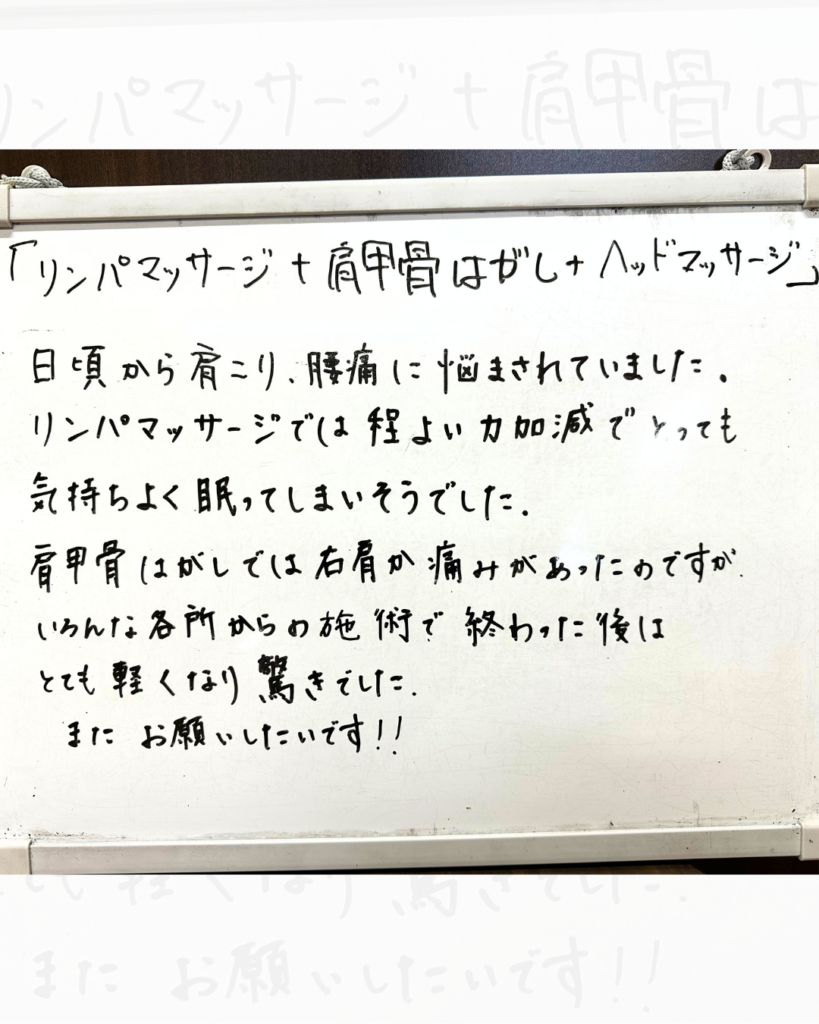 「リンパマッサージ + 肩甲骨はがし + ヘッドマッサージ」
日頃から肩こり、腰痛に悩まされていました。
リンパマッサージでは程よい力加減でとっても
気持ちよく眠ってしまいそうでした。
肩甲骨はがしでは右肩か痛みがあったのですが、
いろんな各所からの施術で終わった後は
とても軽くなり驚きでした。
また お願いしたいです!!